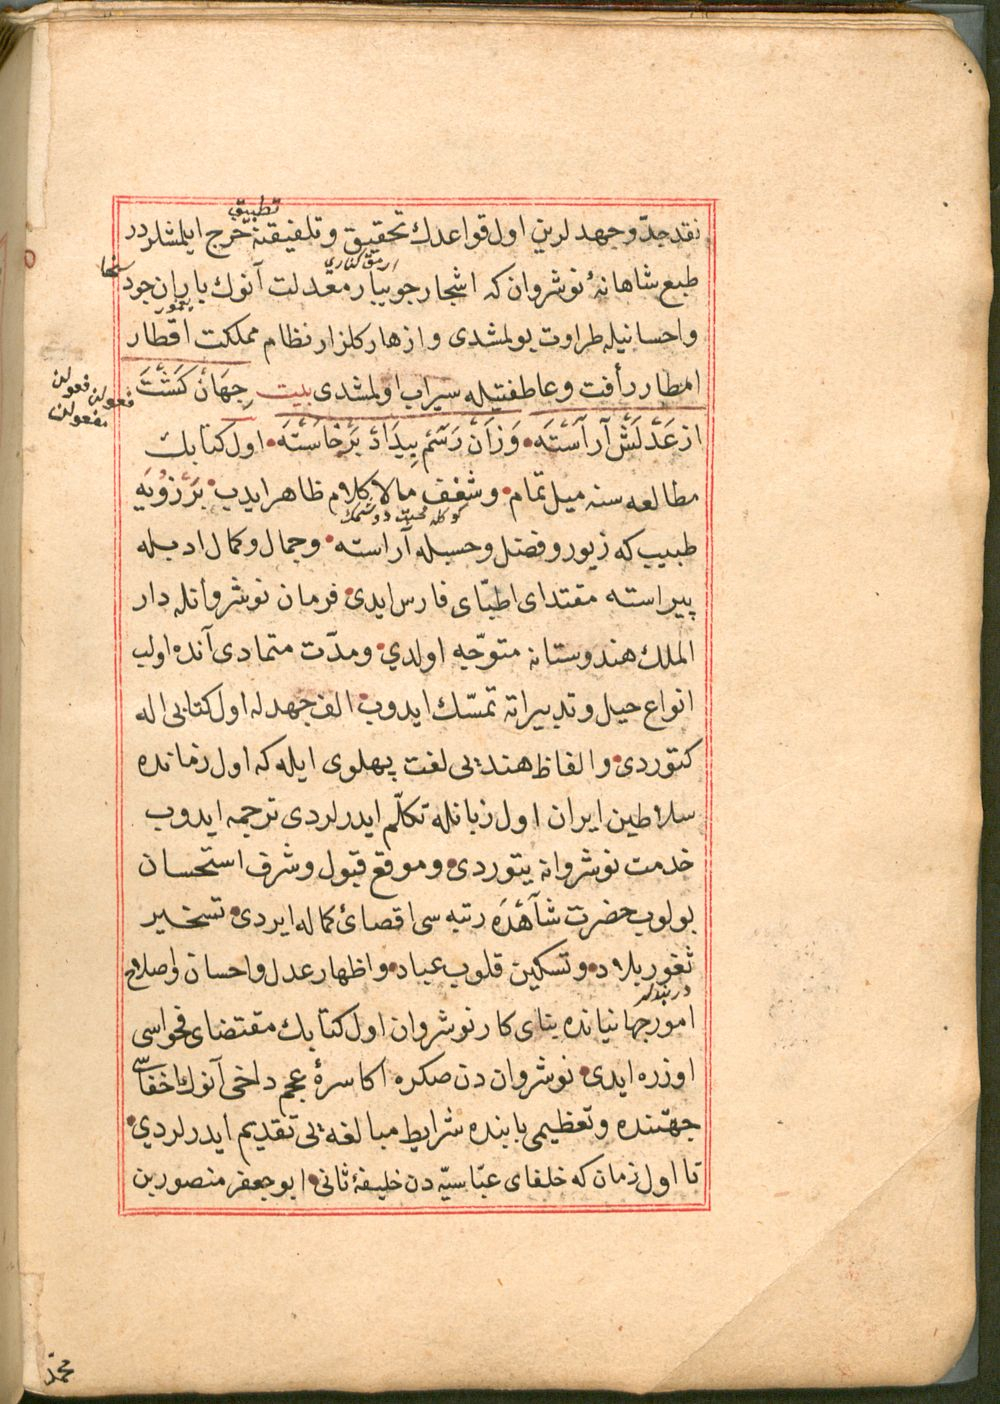 تطبيق
نقد جدّ و جهد لرين اول قواعدك تحقيق و تلفيقنه خرج ايلمشلردر
ارمق كناري
سخا
طبع شاهانهٔ نوشروان كه اشجار جويبار معدلت آنوك باران جود
يغمور
و احسانيله طراوت بولمشدى و ازهار كلزار نظام مملكت اقطار
امطار رأفت و عاطفتيله سيراب اولمشدى بيت جهان كشت
فعولن فعولن
فعولن فعولن
از عدلش آراسته و زان رسم بيداد برخاسته اول كتابك
مطالعه سنه ميل تمام و شغف مالا كلام ظاهر ايدب برزويه
كوكله محبت دوشمك
طبيب كه زيور و فضل و حسبله آراسته و جمال و كمال ادبله
پيراسته مقتداى اطبّاى فارس ايدى فرمان نوشروانله دار
الملك هندوستانه متوجّه اولدي و مدّت متمادى آنده اولب
انواع حيل و تدبيراته تمسّك ايدوب الف جهدله اول كتابى اله
كتوردى و الفاظ هنديى لغت پهلوى ايله كه اول زمانده
سلاطين ايران اول زبانله تكلّم ايدرلردى ترجمه ايدوب
خدمت نوشروانه يتوردى و موقع قبول و شرف استحسان
بولوب حضرت شاهده رتبه سى اقصاى كماله ايردى تسخير
ثغور بلاد و تسكين قلوب عباد و اظهار عدل و احسان و اصلاح
دربندلر
امور جهانيانده بناى كار نوشروان اول كتابك مقتضاى فحواسى
اوزره ايدى نوشروان دن صكره اكاسرهٔ عجم داخى آنوك اخفاسى
جهتنده و تعظيمى بابنده شرايط مبالغه يى تقديم ايدرلردي
تا اول زمان كه خلفاى عبّاسيّه دن خليفهٔ ثانى ابو جعفر منصور بن
محمّد